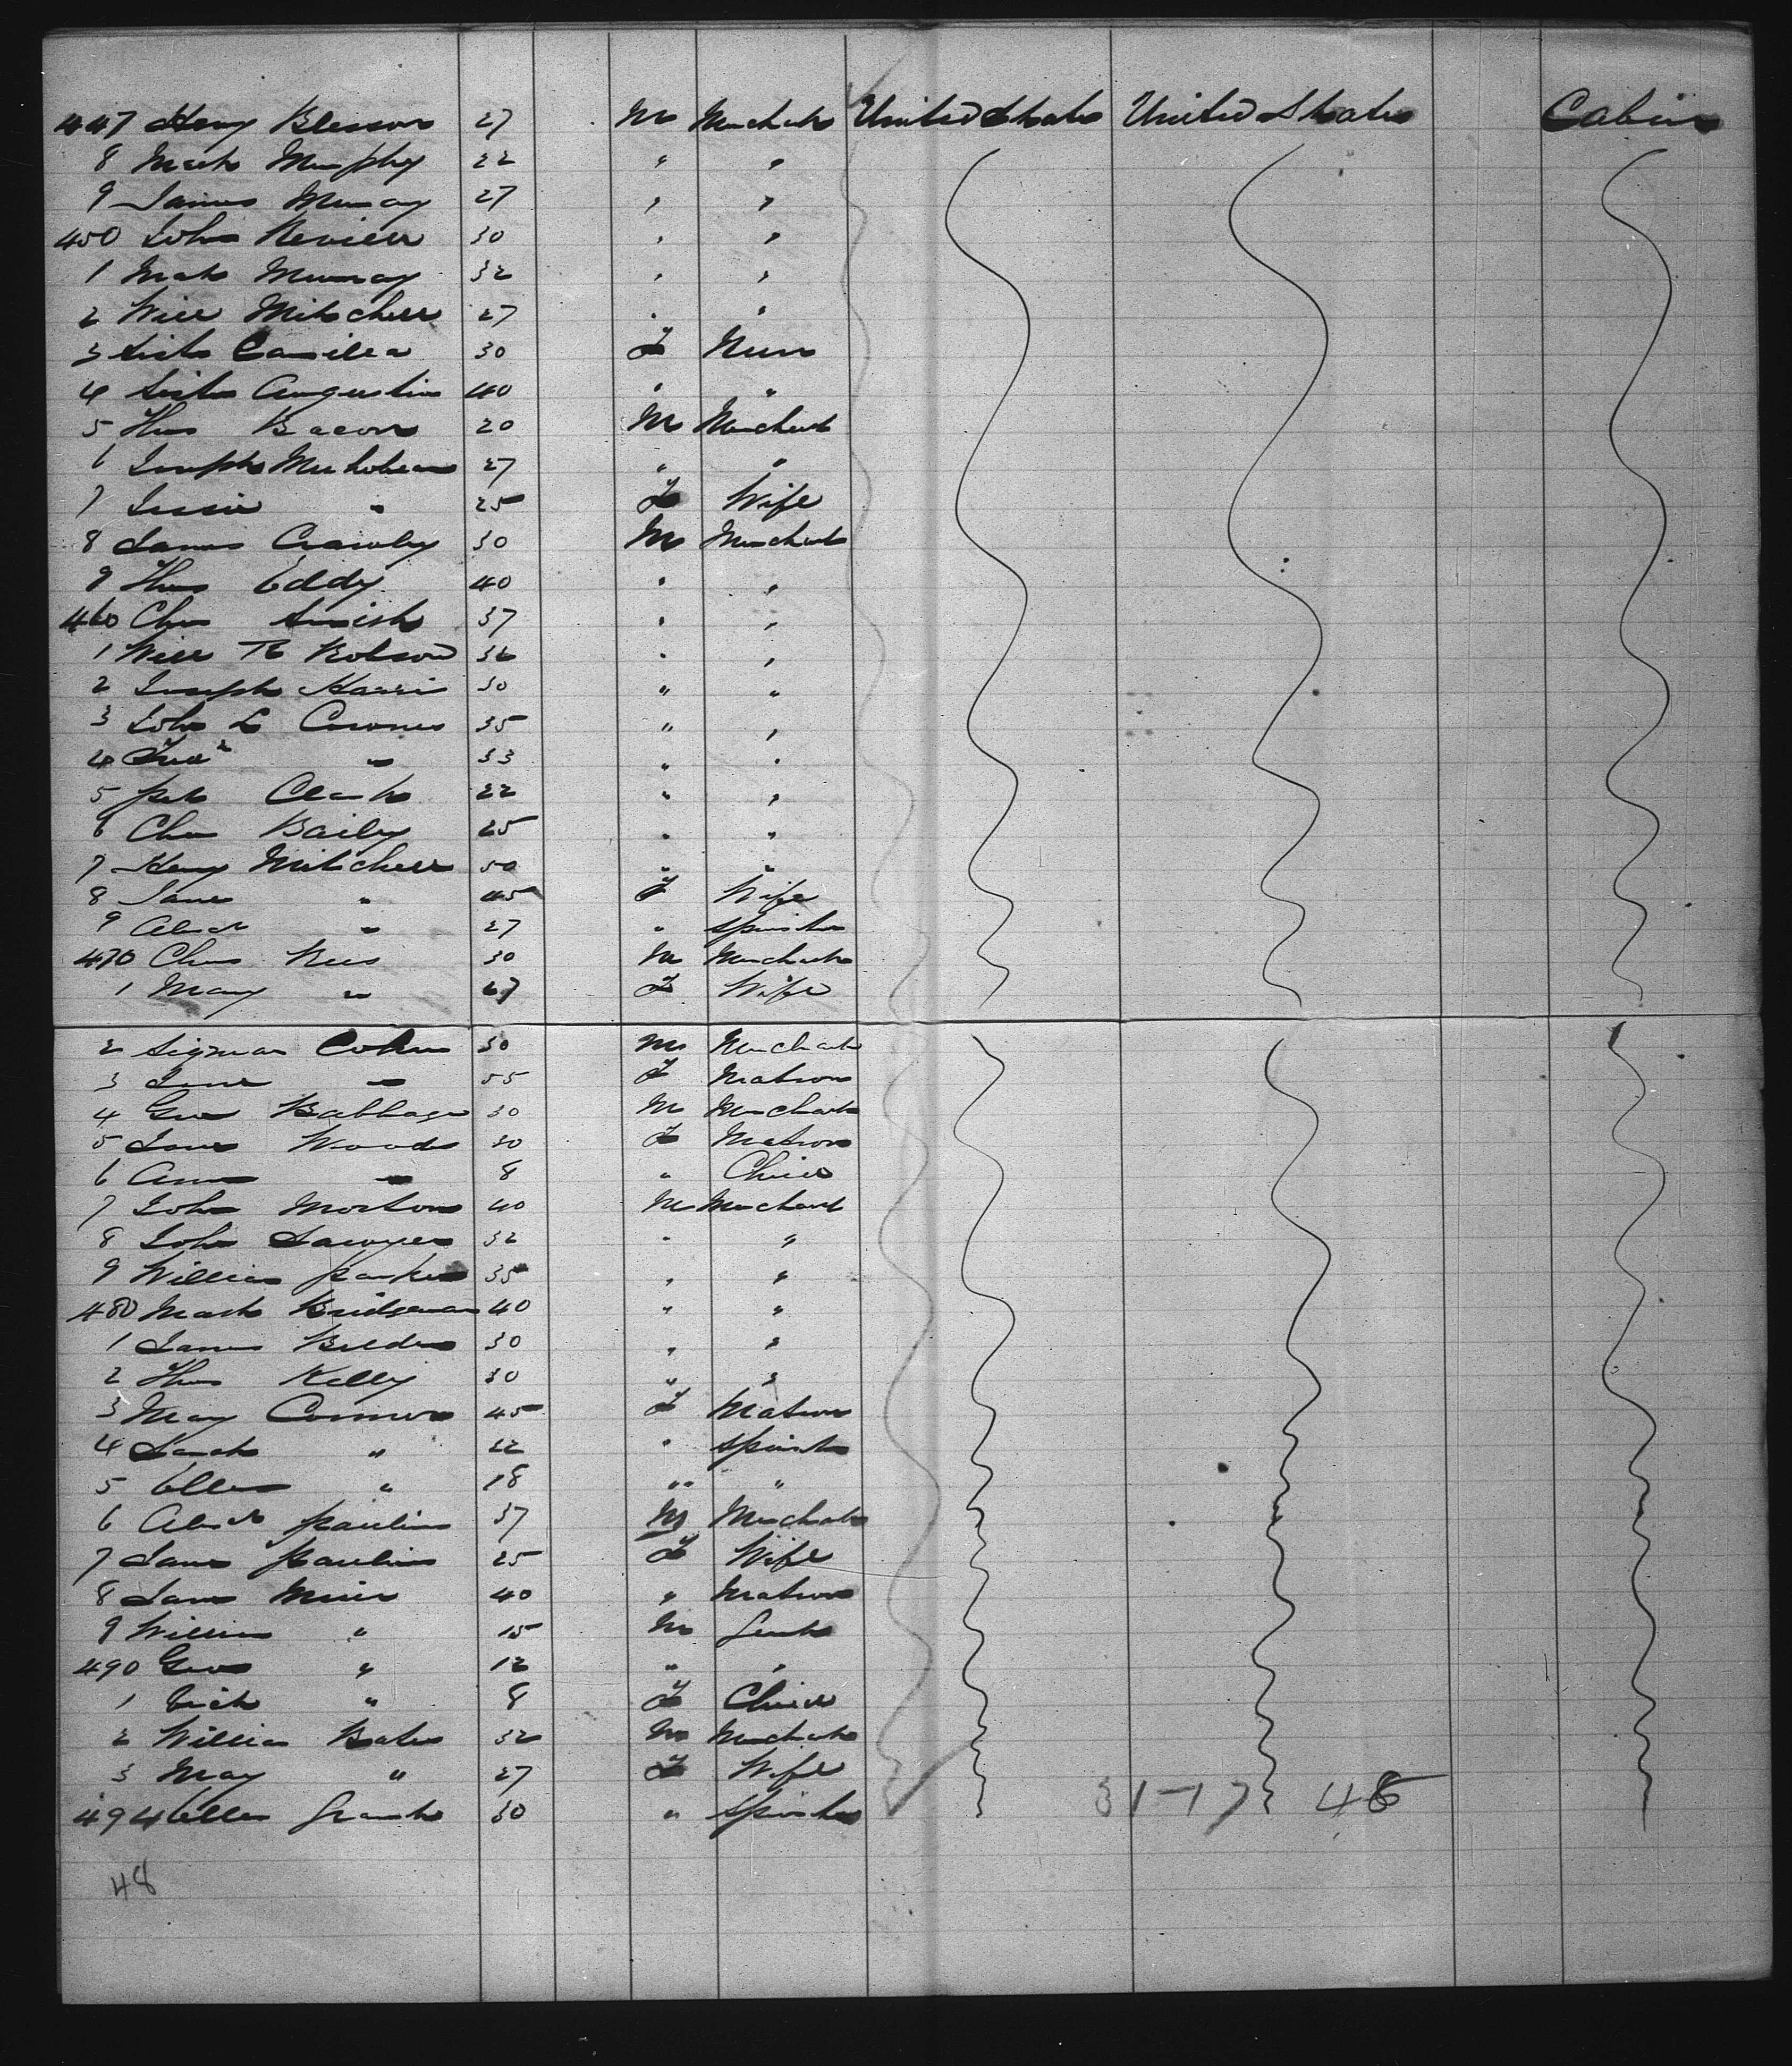 447 Henry Blesson 27 M Merchant United States United States Cabin
8 Mark Murphy 22 " "
9 James Murray 27 " "
450 John 30 " "
1 Mark Murray 32 " "
2 Will Mitchell 27 " "
3 Sister Camilla 30 F Nun
4 Sister Augustin 40 " "
5 Thos Bacon 20 M Merchant
6 Joseph 27 " "
7 Jessie " 25 F Wife
8 James Crawley 30 M Merchant
9 Thos Eddy 40 " "
460 Chas Smith 37 " "
1 Will R Robson 36 " "
2 Joseph Harris 30 " "
3 John L 35 " "
4 Fred " 33 " "
5 Pete Clark 22 " "
6 Chas Baily 25 " "
7 Henry Mitchell 50 " "
8 Jane " 45 F Wife
9 " 27 " Spinster
470 Chas 30 M Merchant
1 Mary " 27 F Wife
2 Sigman Cohn 30 M Merchant
3 " 55 F Matron
4 Geo Babbage 30 M Merchant
5 Jane Woods 30 F Matron
6 Ann " 8 " Child
7 John Morton 40 M Merchant
8 John Sawyer 32 " "
9 William Parker 35 " "
480 Mark Bridgeman 40 " "
1 James 30 " "
2 Thos Kelly 30 " "
3 Mary Connor 45 F Matron
4 Sarah " 22 " Spinster
5 Ellen " 18 " "
6 Paulin 37 M Merchant
7 Jane Paulin 25 F Wife
8 Jane Muir 40 " Matron
9 William " 15 M Gent
490 Geo " 12 " "
1 " 8 F Child
2 William Bates 32 M Merchant
3 Mary " 27 F Wife
494 Ellen 30 " Spinster
31-17 48
48